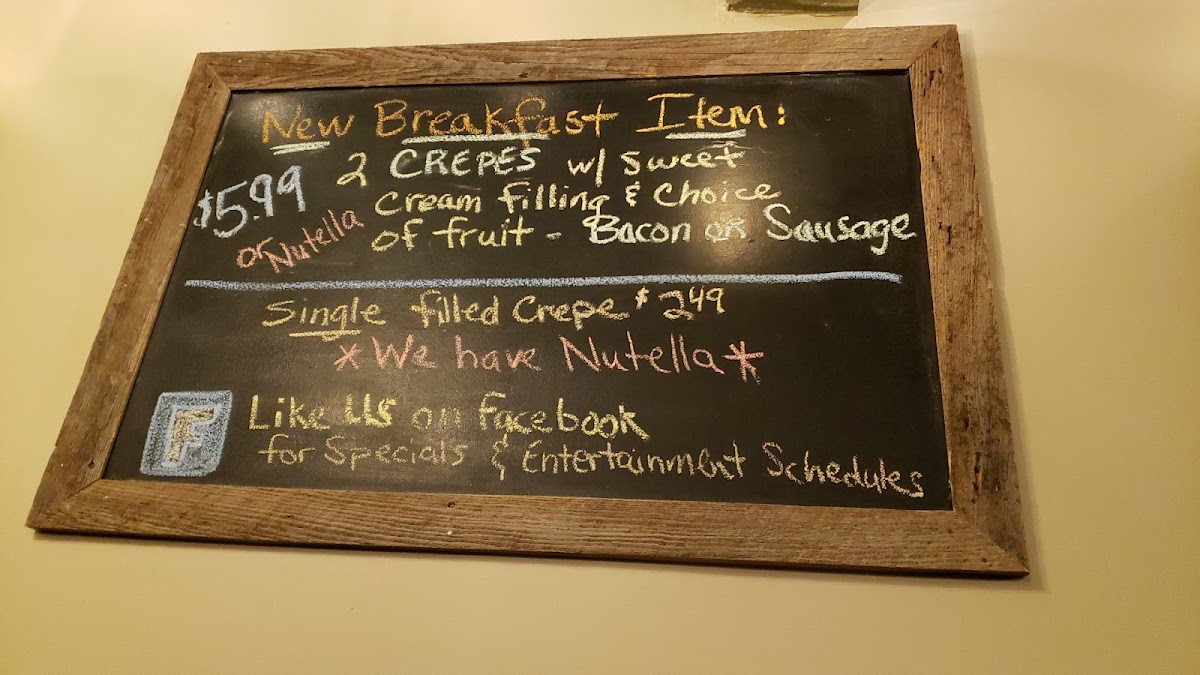 New Breakfast Item:
$5.99
2 CREPES w/ sweet
cream filling & choice
or Nutella
of fruit - Bacon or Sausage
Single filled Crepe $2.49
*We have Nutella*
F
Like Us on Facebook
for Specials & Entertainment Schedules